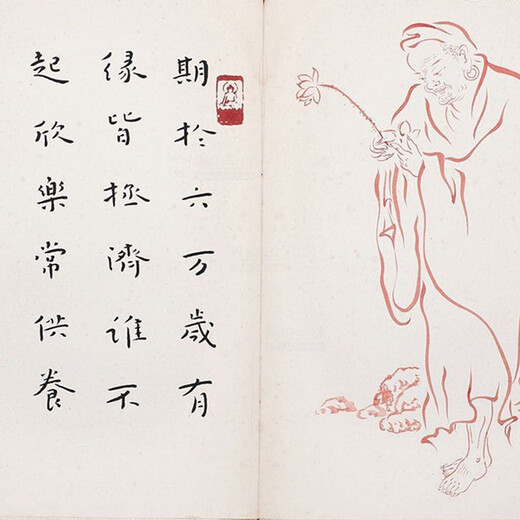 期於六万歲有
緣皆拯濟誰不
起欣樂常供養